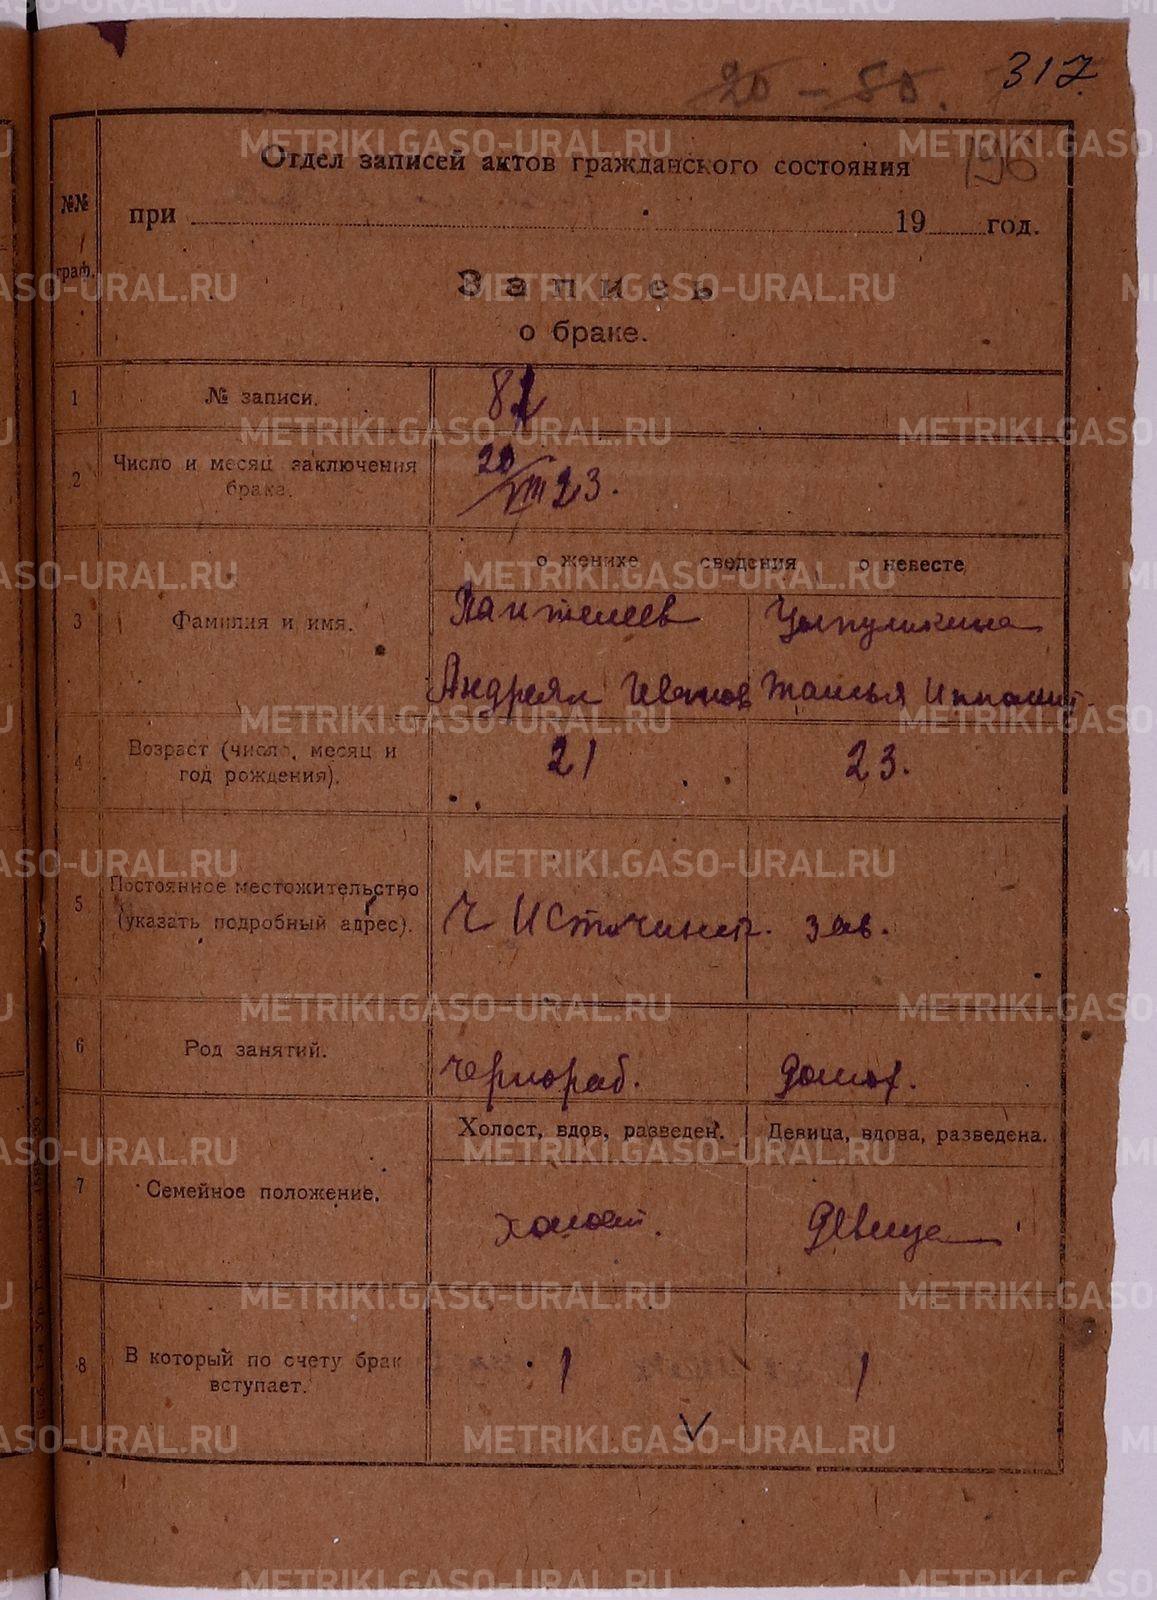 317
20 - 50.
196
Отдел записей актов гражданского состояния
№№ граф.
при 19 год.
Запись
о браке.
1 № записи. 81
2 Число и месяц заключения брака. 20/VIII 23.
о женихе сведения о невесте
3 Фамилия и имя. Пантелеев
Андреян Иванов
4 Возраст (число, месяц и год рождения). 21 23.
5 Постоянное местожительство (указать подробный адрес). зав.
6 Род занятий. чернораб. домох.
Холост, вдов, разведен. Девица, вдова, разведена.
7 Семейное положение. холост. Девица
8 В который по счету брак вступает. 1 1
METRIKI.GASO-URAL.RU